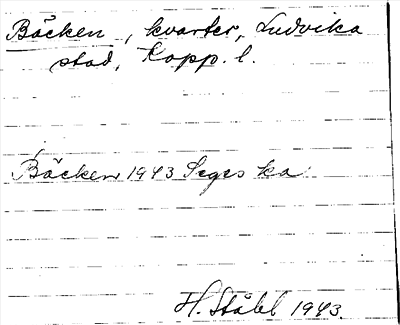 Bäcken, kvarter, Ludvika
stad, Kopp. l.
Bäcken 1943 Seges ka.
H. Ståhl 1943.